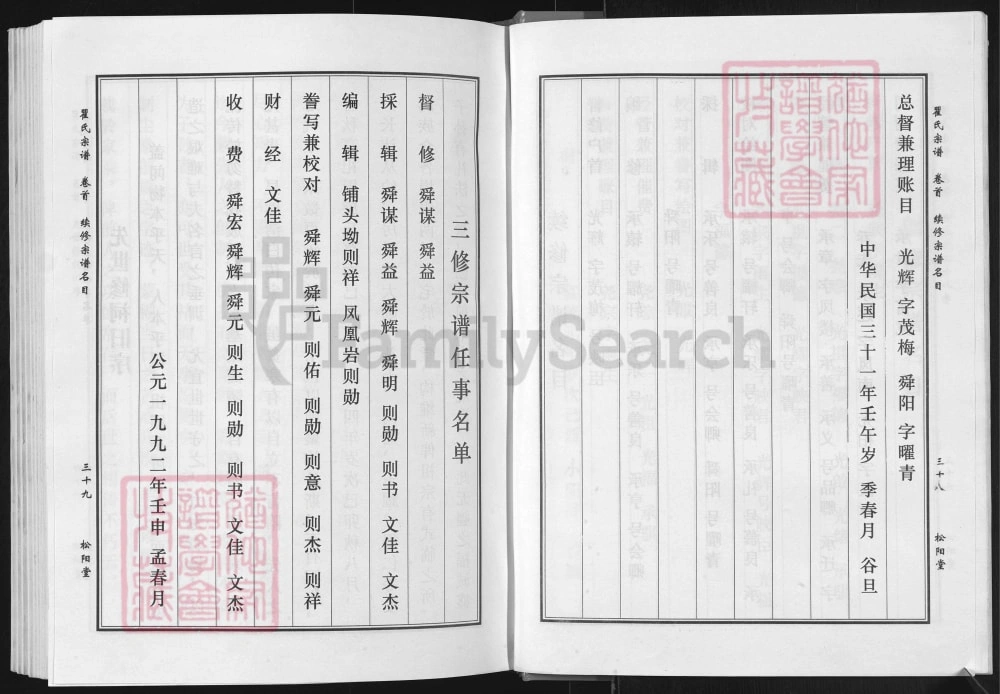 瞿氏宗谱 卷首 续修宗谱名目 三十八 松阳堂
总督兼理账目 光辉 字茂梅 舜阳 字曜青
中华民国三十一年壬午岁 季春月 谷旦
三修宗谱任事名单
督修 舜谋 舜益
採辑 舜谋 舜益 舜辉 舜明 则勋 则书 文佳 文杰
编辑 铺头坳则祥 凤凰岩则勋
誊写兼校对 舜辉 舜元 则佑 则勋 则意 则杰 则祥
财经 文佳
收费 舜宏 舜辉 舜元 则生 则勋 则书 文佳 文杰
公元一九九二年壬申 孟春月
瞿氏宗谱 卷首 续修宗谱名目 三十九 松阳堂
FamilySearch